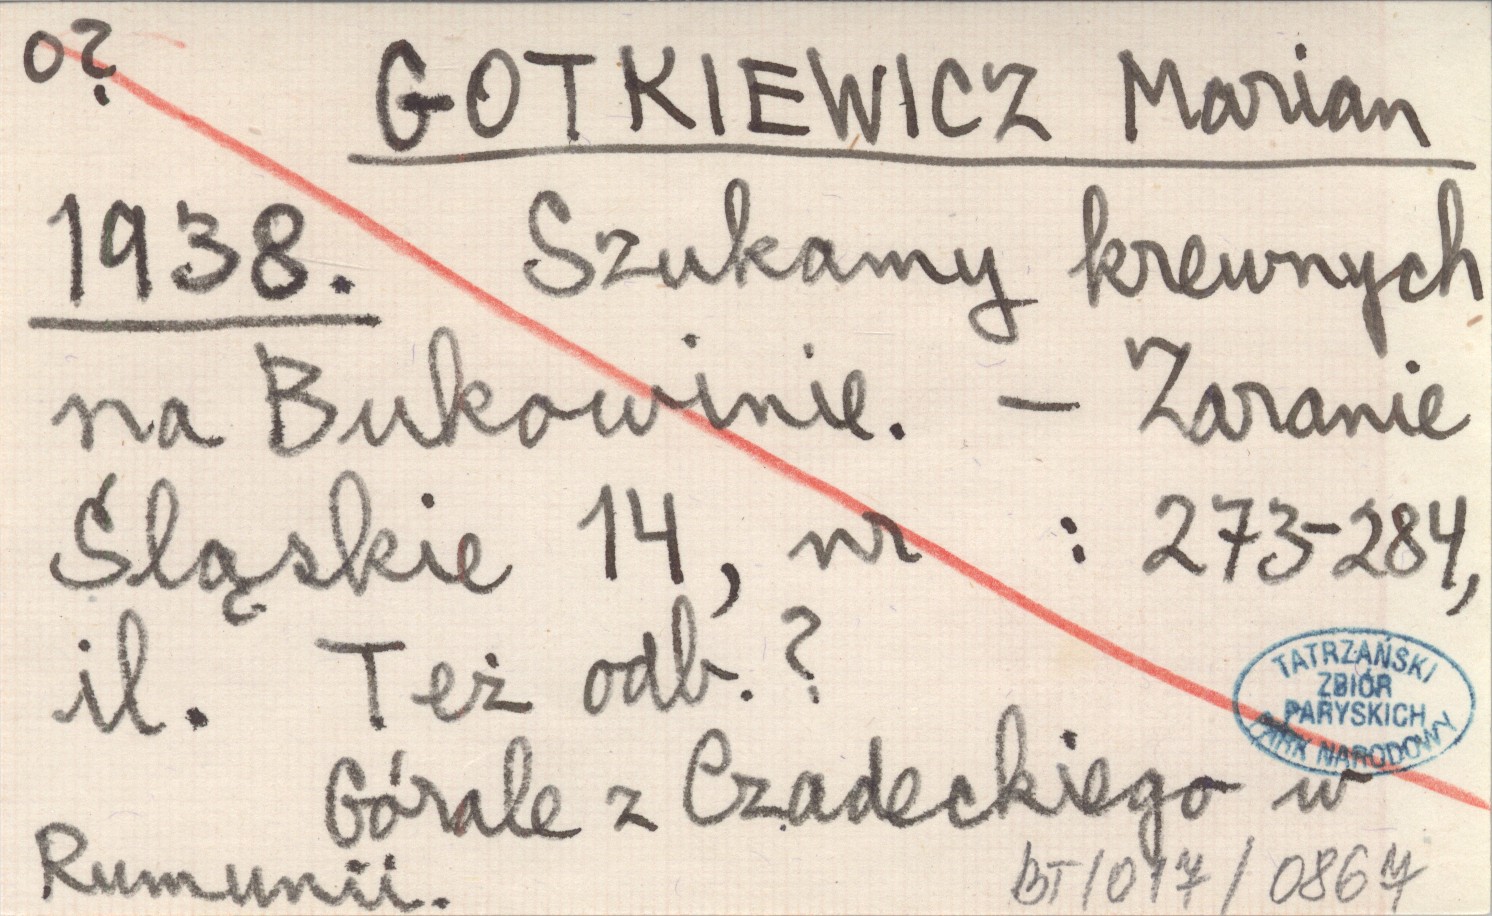 o?
GOTKIEWICZ Marian
1938. Szukamy krewnych
na Bukowinie. — Zaranie
Śląskie 14, nr : 273-284,
il. Też odb.?
TATRZAŃSKI
ZBIÓR
PARYSKICH
PARK NARODOWY
Górale z Czadeckiego w
Rumunii.
BT/017/0867